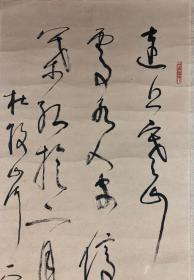 遠上寒山
處有人家停
葉紅於二月
杜牧山行